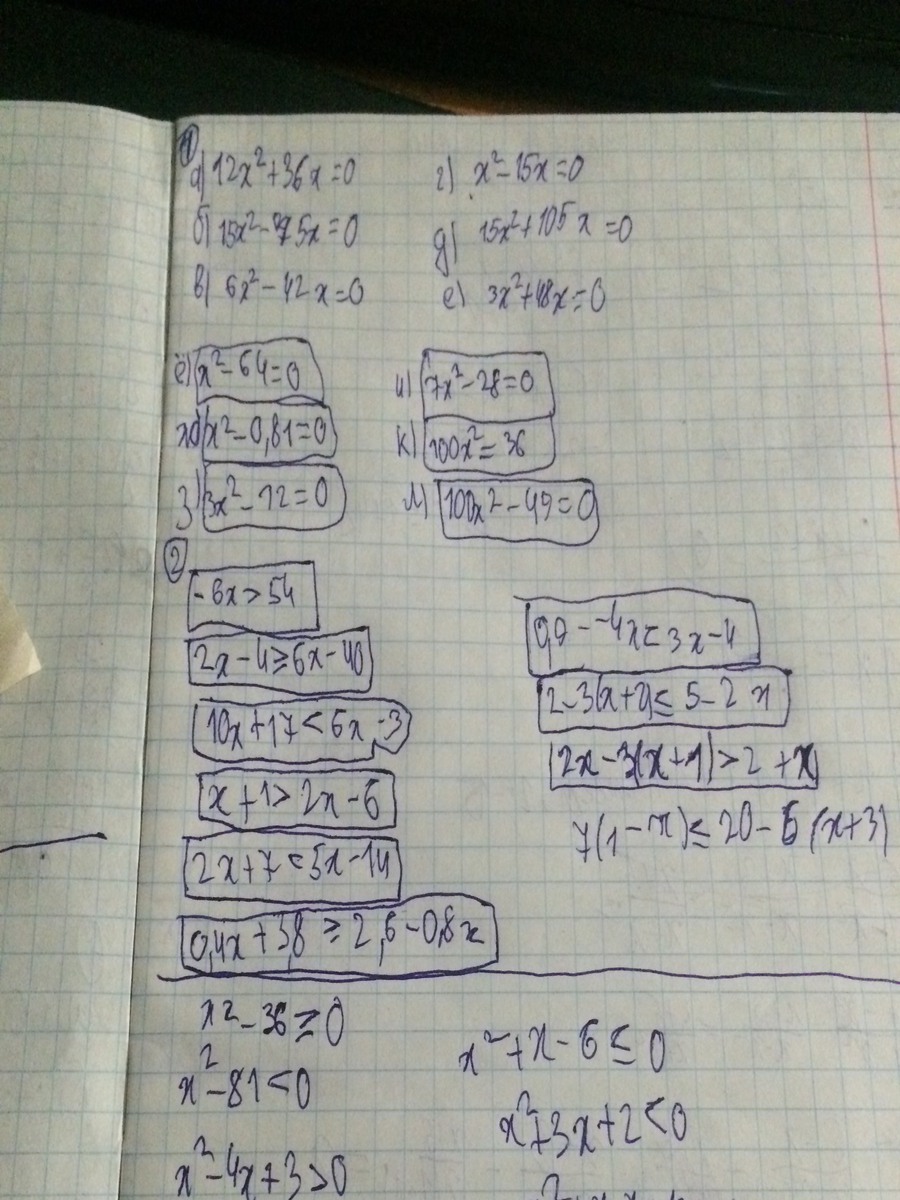 1
а) 12x²+36x=0
б) 15x²-75x=0
в) 6x²-42x=0
г) x²-15x=0
д) 15x²+105x=0
е) 3x²+48x=0
ё) x²-64=0
ж) x²-0,81=0
з) 3x²-12=0
и) 7x²-28=0
к) 100x²=36
л) 100x²-49=0
2
-6x>54
2x-4≥6x-40
10x+17<6x-3
x+1>2x-6
2x+7<5x-14
0,4x+3,8≥2,6-0,8x
-4x<3x-4
5-2x
2x-3(x+1)>2+x
7(1-x)≤20-5(x+3)
x²-36≥0
x²-81<0
x²-4x+3>0
x²+x-6≤0
x²+3x+2<0